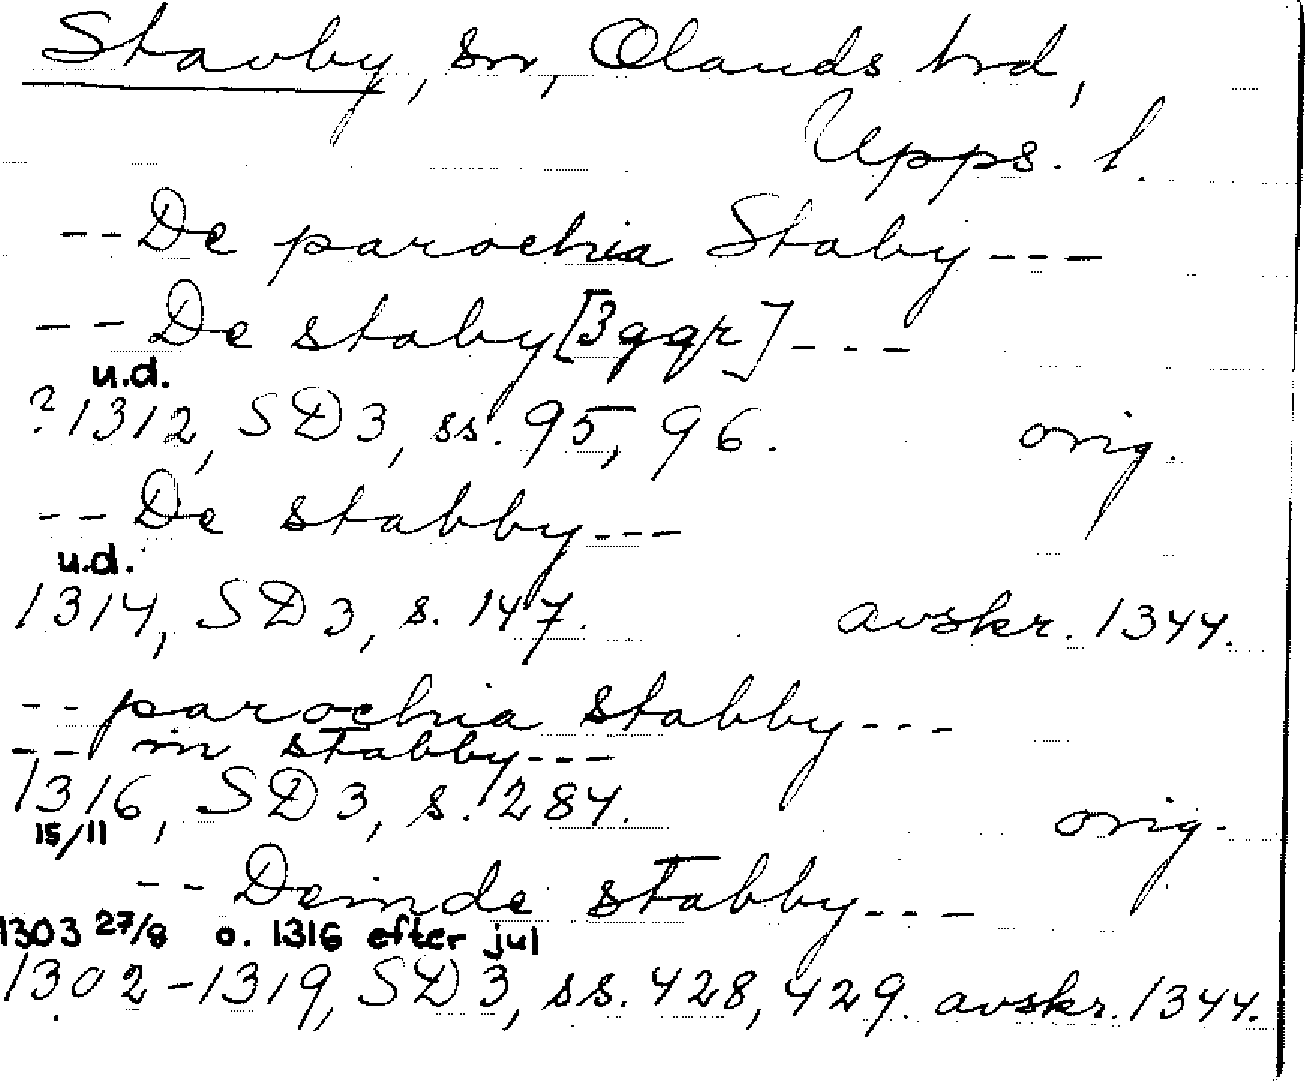 Stavby, sn, Olands hrd,
Upps. l.
-- De parochia Staby ---
-- De staby [3 ggr] ---
u.d.
? 1312, SD 3, ss. 95, 96. orig.
-- De stabby ---
u.d.
1314, SD 3, s. 147. avskr. 1344.
-- parochia stabby ---
-- in stabby ---
1316, SD 3, s. 284. orig.
15/11
-- Deinde stabby ---
1303 27/8 o. 1316 efter jul
1302-1319, SD 3, ss. 428, 429. avskr. 1344.